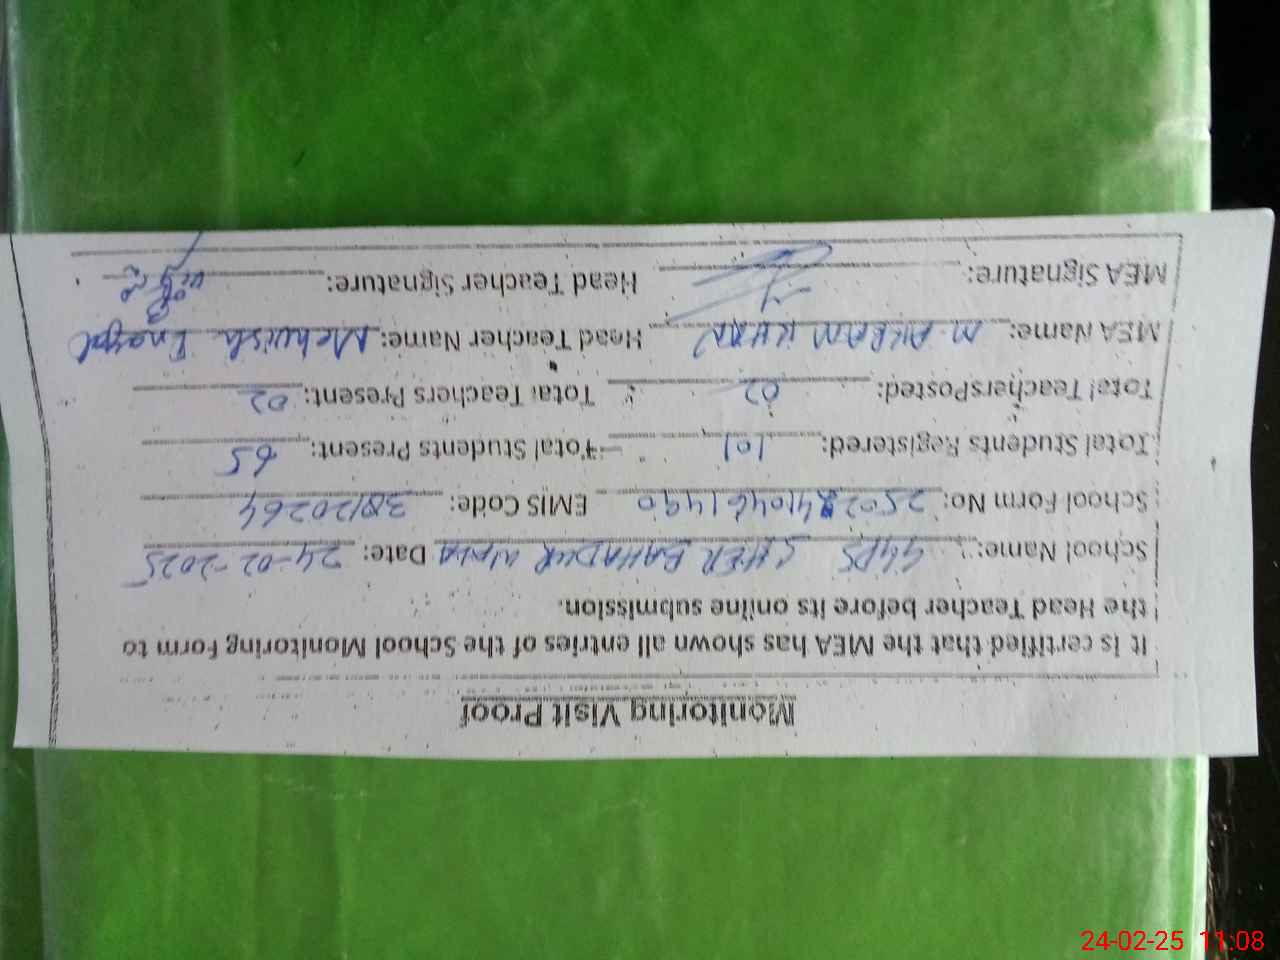 Monitoring Visit Proof
It is certified that the MEA has shown all entries of the School Monitoring Form to
the Head Teacher before its online submission.
School Name: GGPS SHER BAHADUR WALA Date: 24-02-2025
School Form No: EMIS Code: 38120264
Total Students Registered: 101 Total Students Present: 65
Total TeachersPosted: 02 Total Teachers Present: 02
MEA Name: M. AKRAM KHAN Head Teacher Name: Mehwish
MEA Signature: Head Teacher Signature:
24-02-25 11:08